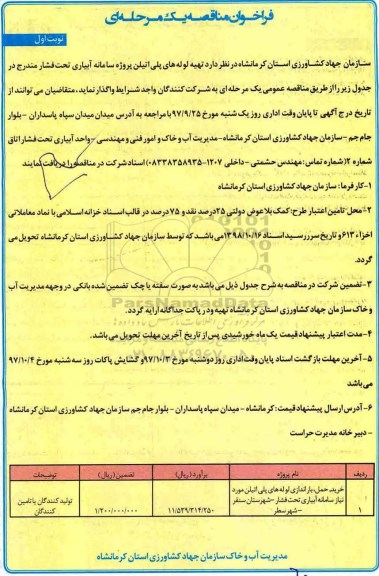 فراخوان مناقصه یک مرحله‌ای
نوبت اول
سازمان جهاد کشاورزی استان کرمانشاه در نظر دارد تهیه لوله های پلی اتیلن پروژه سامانه آبیاری تحت فشار مندرج در
جدول زیر را از طریق مناقصه عمومی یک مرحله ای به شرکت کنندگان واجد شرایط واگذار نماید، متقاضیان می توانند از
تاریخ درج آگهی تا پایان وقت اداری روز یک شنبه مورخ ۹۷/۹/۲۵ با مراجعه به آدرس میدان میدان سپاه پاسداران -بلوار
جام جم -سازمان جهاد کشاورزی استان کرمانشاه -مدیریت آب و خاک و امور فنی و مهندسی -واحد آبیاری تحت فشار اتاق
شماره ۲ (شماره تماس: مهندس حشمتی -داخلی ۱۲۰۷-۰۸۳۳۸۳۵۸۹۳۵) اسناد شرکت در مناقصه را دریافت نمایند
۱-کار فرما: سازمان جهاد کشاورزی استان کرمانشاه
۲-محل تامین اعتبار طرح: کمک بلاعوض دولتی ۲۵ درصد نقد و ۷۵ درصد در قالب اسناد خزانه اسلامی با نماد معاملاتی
اخزا، ۶۱۳ و تاریخ سررسید اسناد ۱۳۹۸/۱۰/۱۶ می باشد که توسط سازمان جهاد کشاورزی استان کرمانشاه تحویل می
گردد.
۳-تضمین شرکت در مناقصه به شرح جدول ذیل می باشد به صورت سفته یا چک تضمین شده بانکی در وجهه مدیریت آب
و خاک سازمان جهاد کشاورزی استان کرمانشاه تهیه و در پاکت جداگانه ارایه گردد.
۴-مدت اعتبار پیشنهاد قیمت یک ماه خورشیدی پس از تاریخ آخرین مهلت تحویل می باشد.
۵-آخرین مهلت بازگشت اسناد پایان وقت اداری روز دوشنبه مورخ ۹۷/۱۰/۳ و گشایش پاکات روز سه شنبه مورخ ۹۷/۱۰/۴
می باشد
۶-آدرس ارسال پیشنهاد قیمت: کرمانشاه - میدان سپاه پاسداران - بلوار جام جم سازمان جهاد کشاورزی استان کرمانشاه
- دبیر خانه مدیرت حراست
ردیف نام پروژه برآورد (ریال) تضمین (ریال) توضیحات
۱ خرید، حمل، بار اندازی لوله های پلی اتیلن مورد نیاز سامانه آبیاری تحت فشار -شهرستان سنقر -شهر سطر ۱۱/۵۳۹/۳۱۴/۲۵۰ ۱/۲۰۰/۰۰۰/۰۰۰ تولید کنندگان یا تامین کنندگان
مدیریت آب و خاک سازمان جهاد کشاورزی استان کرمانشاه